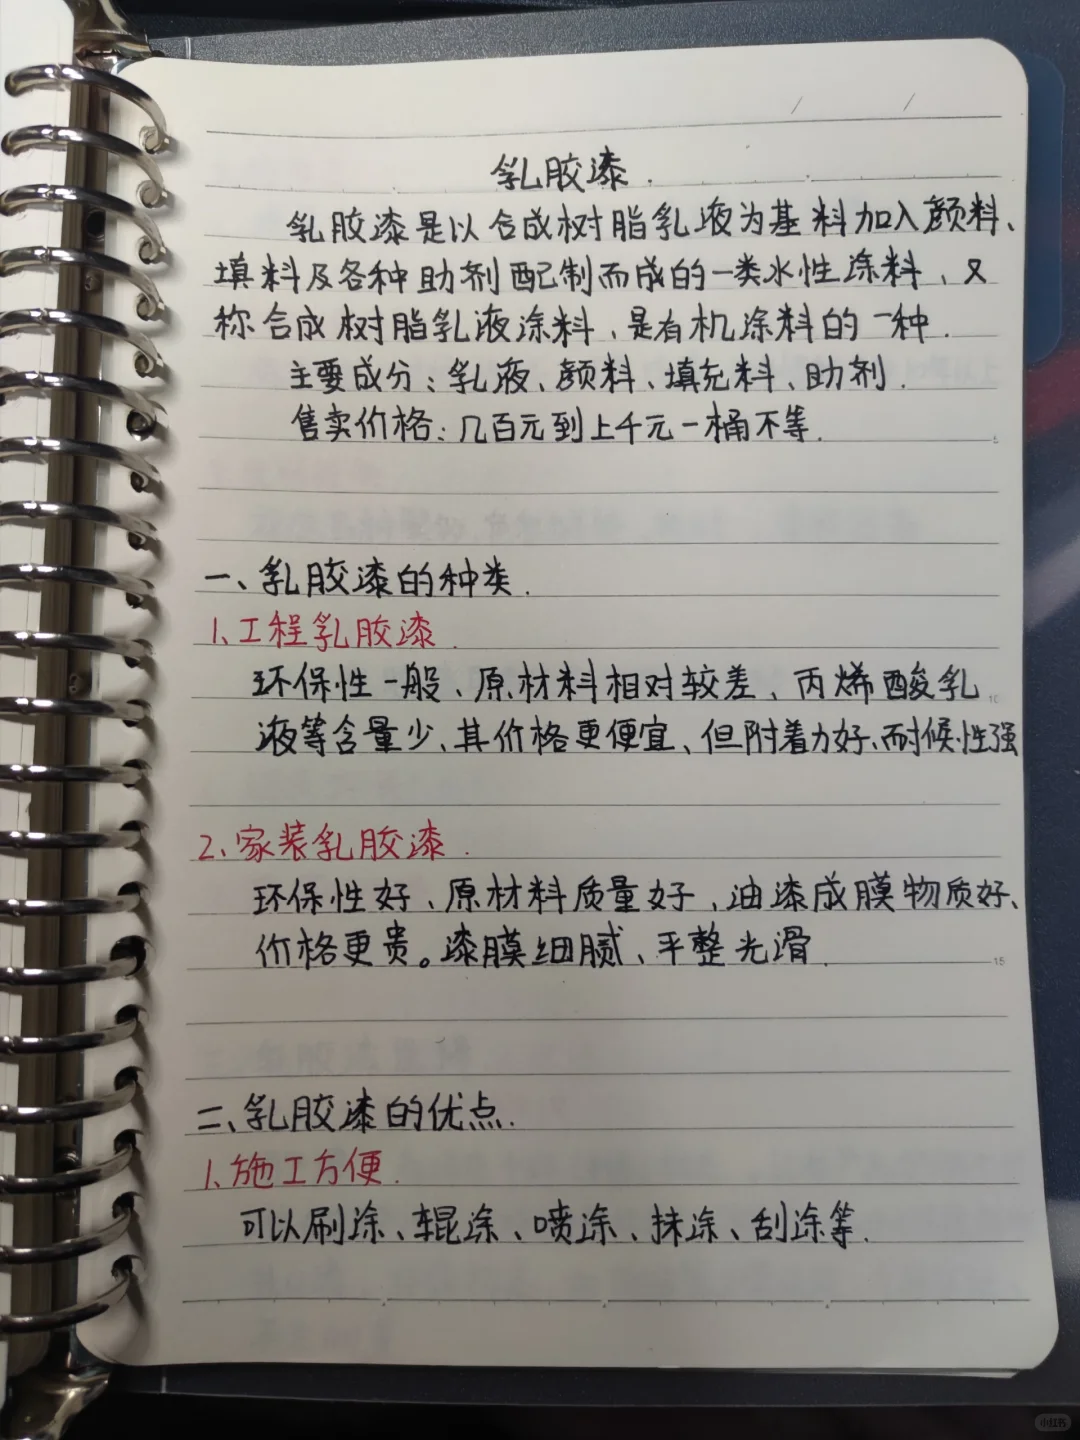 乳胶漆.
乳胶漆是以合成树脂乳液为基料加入颜料、
填料及各种助剂配制而成的一类水性涂料，又
称合成树脂乳液涂料，是有机涂料的一种.
主要成分：乳液、颜料、填充料、助剂.
售卖价格：几百元到上千元一桶不等.
5
一、乳胶漆的种类.
1、工程乳胶漆.
环保性一般、原材料相对较差、丙烯酸乳
10
液等含量少、其价格更便宜、但附着力好、耐候性强
2、家装乳胶漆.
环保性好、原材料质量好、油漆成膜物质好、
价格更贵。漆膜细腻、平整光滑.
15
二、乳胶漆的优点.
1、施工方便.
可以刷涂、辊涂、喷涂、抹涂、刮涂等.
小红书